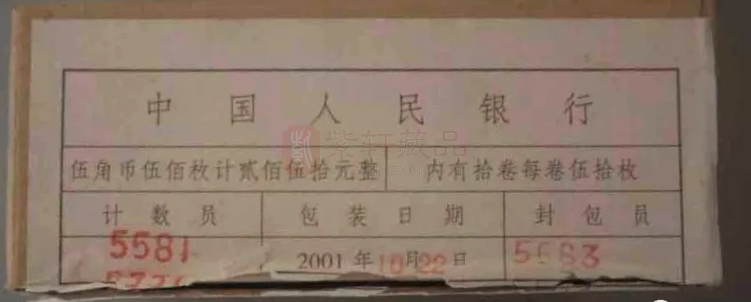 中国人民银行
伍角币伍佰枚计贰佰伍拾元整 内有拾卷每卷伍拾枚
计数员 包装日期 封包员
5581 2001年10月22日 5583
紫轩藏品